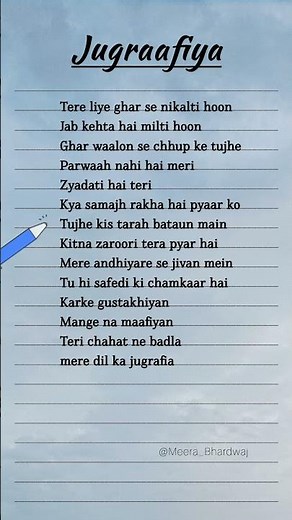 Jugraafiya
Tere liye ghar se nikalti hoon
Jab kehta hai milti hoon
Ghar waalon se chhup ke tujhe
Parwaah nahi hai meri
Zyadati hai teri
Kya samajh rakha hai pyaar ko
Tujhe kis tarah bataun main
Kitna zaroori tera pyar hai
Mere andhiyare se jivan mein
Tu hi safedi ki chamkaar hai
Karke gustakhiyan
Mange na maafiyan
Teri chahat ne badla
mere dil ka jugrafia
@Meera_Bhardwaj